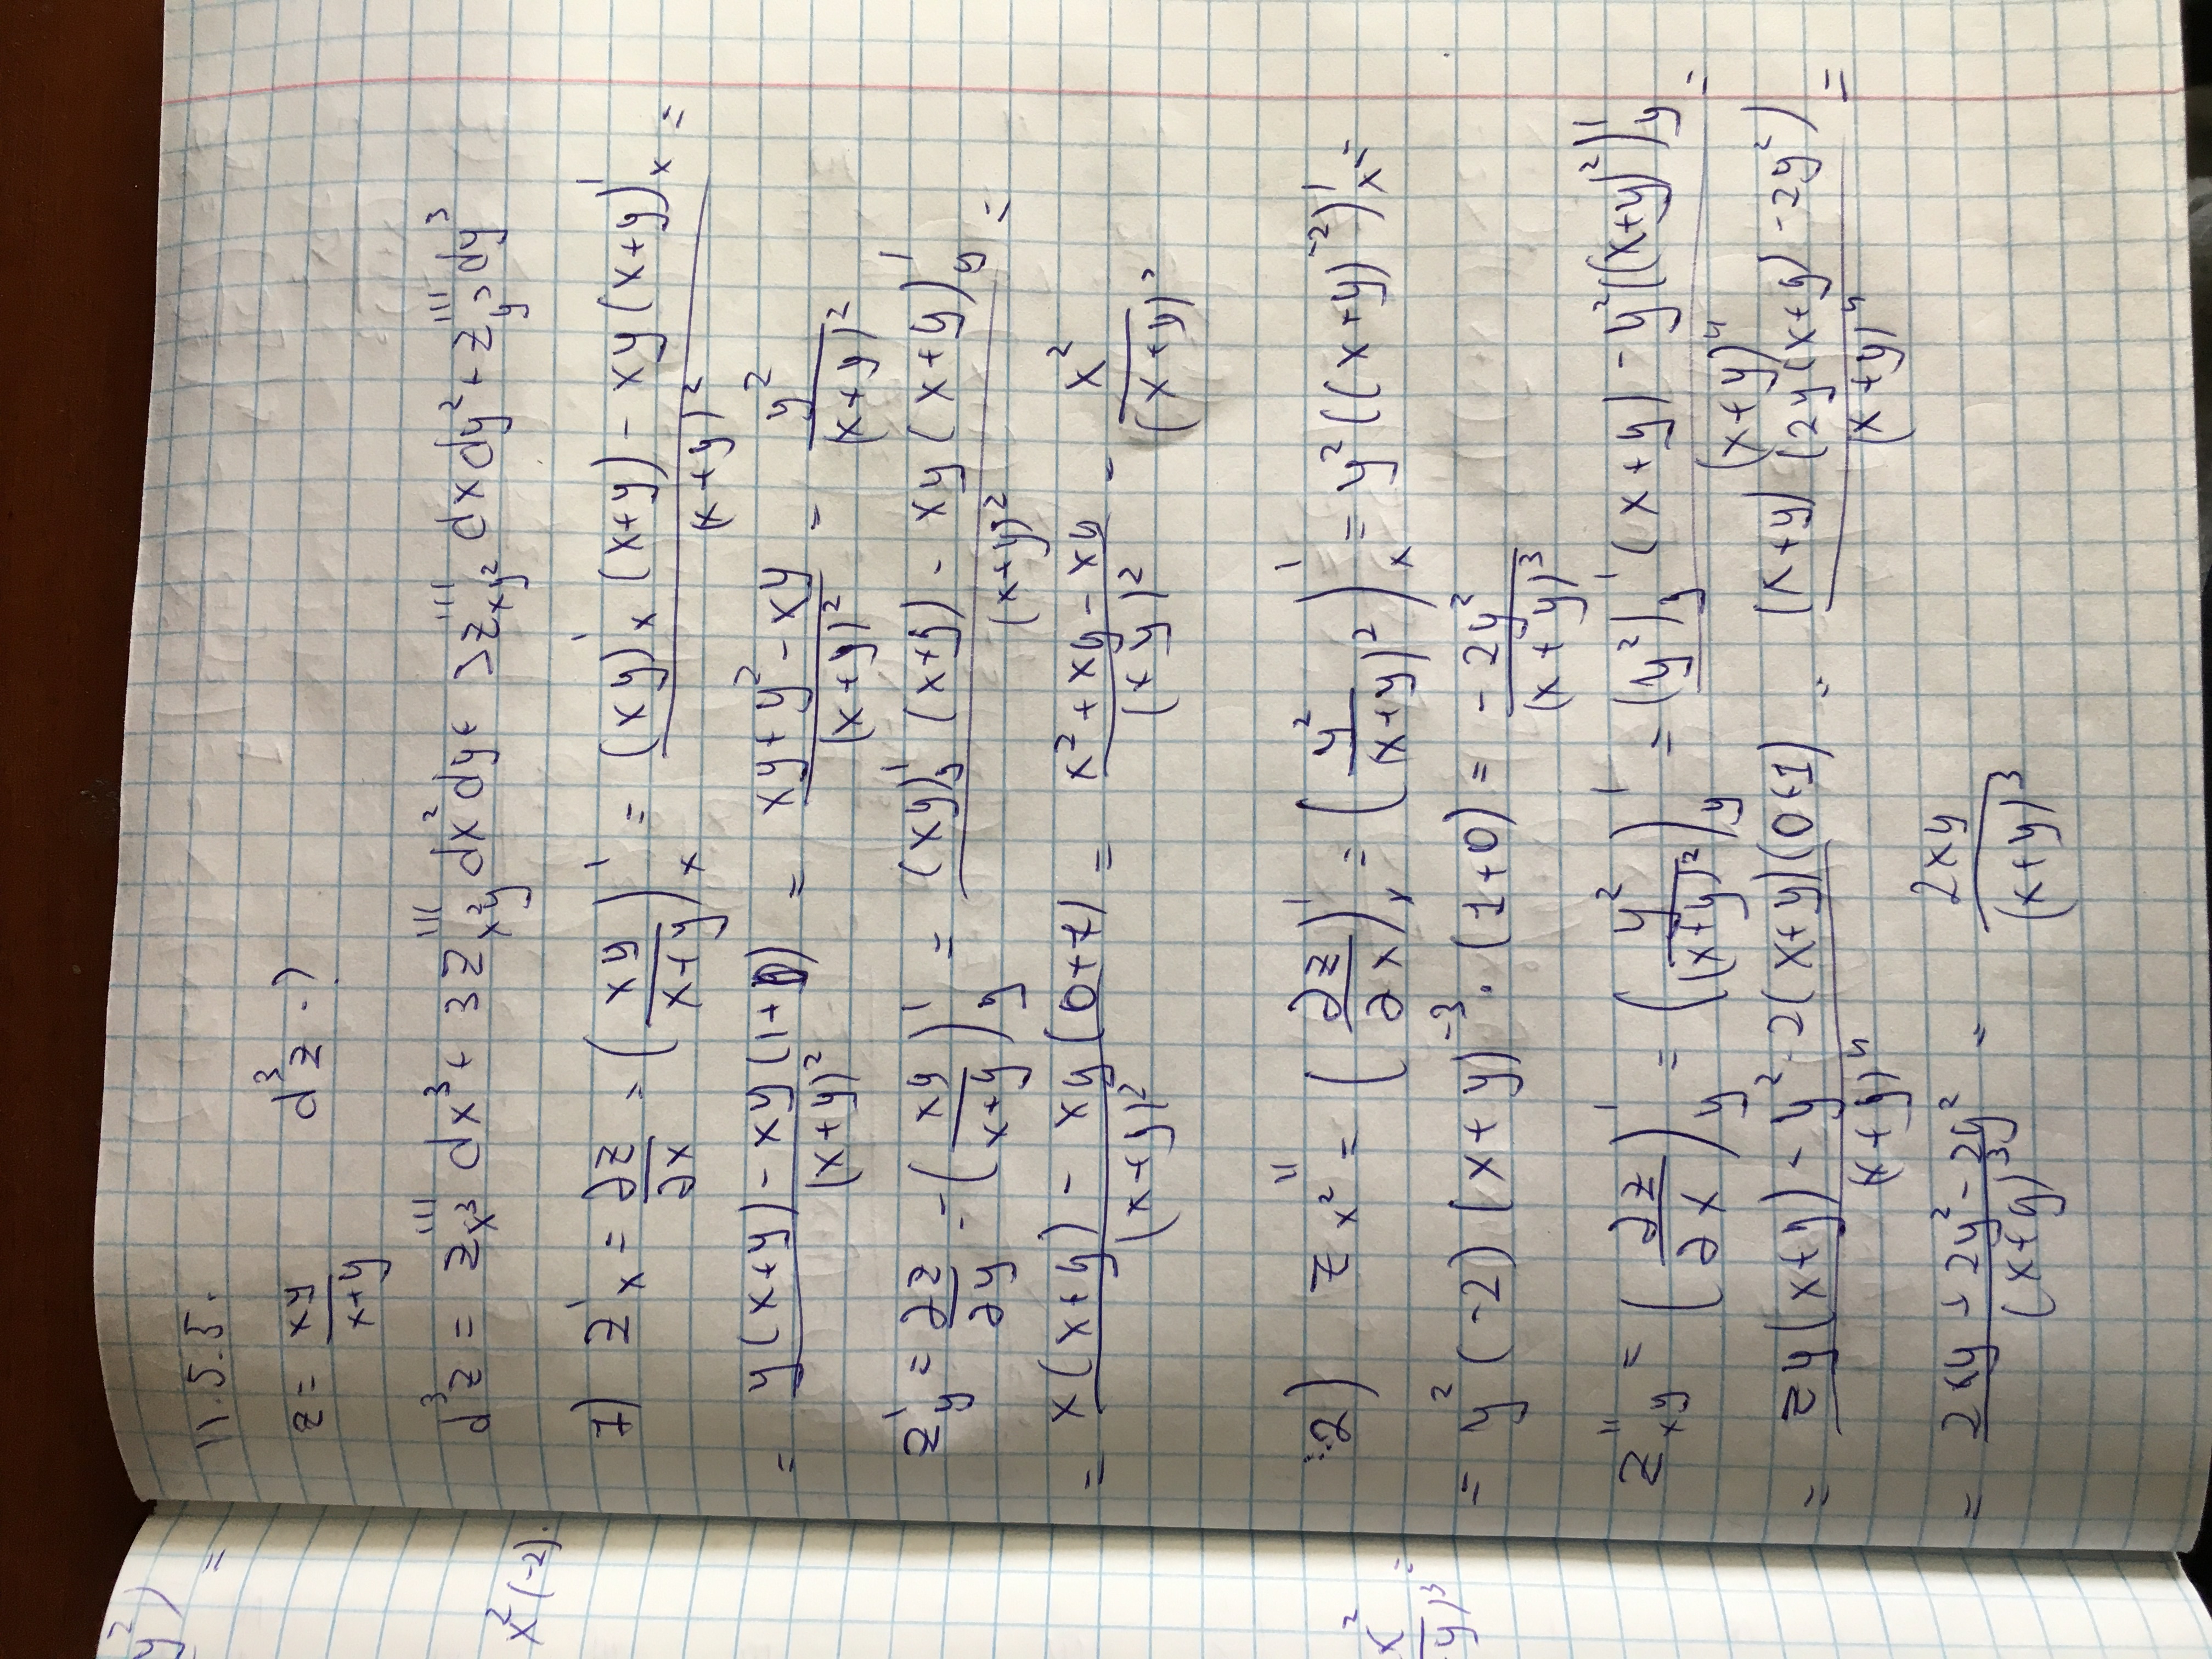 y²)
=
x²(-2).
x²
y)³ =
11.5.5.
z = xy/(x+y)   d³z - ?
d³z = z'''x³ dx³ + 3z'''x²y dx²dy + 3z'''xy² dxdy² + z'''y³ dy³
1) z'x = ∂z/∂x = (xy/(x+y))'x = ((xy)'x (x+y) - xy(x+y)'x)/(x+y)² =
= (y(x+y) - xy(1+0))/(x+y)² = (xy+y²-xy)/(x+y)² = y²/(x+y)²
z'y = ∂z/∂y = (xy/(x+y))'y = ((xy)'y (x+y) - xy(x+y)'y)/(x+y)² =
= (x(x+y) - xy(0+1))/(x+y)² = (x²+xy-xy)/(x+y)² = x²/(x+y)²
2) z''x² = (∂z/∂x)'x = (y²/(x+y)²)'x = y²((x+y)⁻²)'x =
= y²(-2)(x+y)⁻³·(1+0) = -2y²/(x+y)³
z''xy = (∂z/∂x)'y = (y²/(x+y)²)'y = ((y²)'y (x+y) - y²((x+y)²)'y)/(x+y)⁴ =
= (2y(x+y) - y²·2(x+y)(0+1))/(x+y)⁴ = ((x+y)(2y(x+y) - 2y²))/(x+y)⁴ =
= (2xy+2y²-2y²)/(x+y)³ = 2xy/(x+y)³